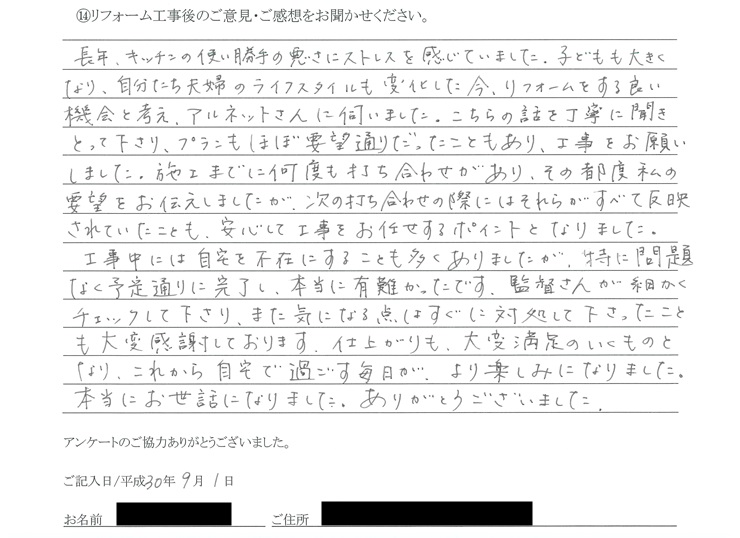 ⑭リフォーム工事後のご意見・ご感想をお聞かせください。
長年、キッチンの使い勝手の悪さにストレスを感じていました。子どもも大きく
なり、自分たち夫婦のライフスタイルも変化した今、リフォームをする良い
機会と考え、アルネットさんに伺いました。こちらの話を丁寧に聞き
とって下さり、プランもほぼ要望通りだったこともあり、工事をお願い
しました。施工までに何度も打ち合わせがあり、その都度私の
要望をお伝えしましたが、次の打ち合わせの際にはそれらがすべて反映
されていたことも、安心して工事をお任せするポイントとなりました。
工事中には自宅を不在にすることも多くありましたが、特に問題
なく予定通りに完了し、本当に有難かったです。監督さんが細かく
チェックして下さり、また気になる点はすぐに対処して下さったこと
も大変感謝しております。仕上がりも、大変満足のいくものと
なり、これから自宅で過ごす毎日が、より楽しみになりました。
本当にお世話になりました。ありがとうございました。
アンケートのご協力ありがとうございました。
ご記入日/平成30年 9月 1日
お名前 ご住所